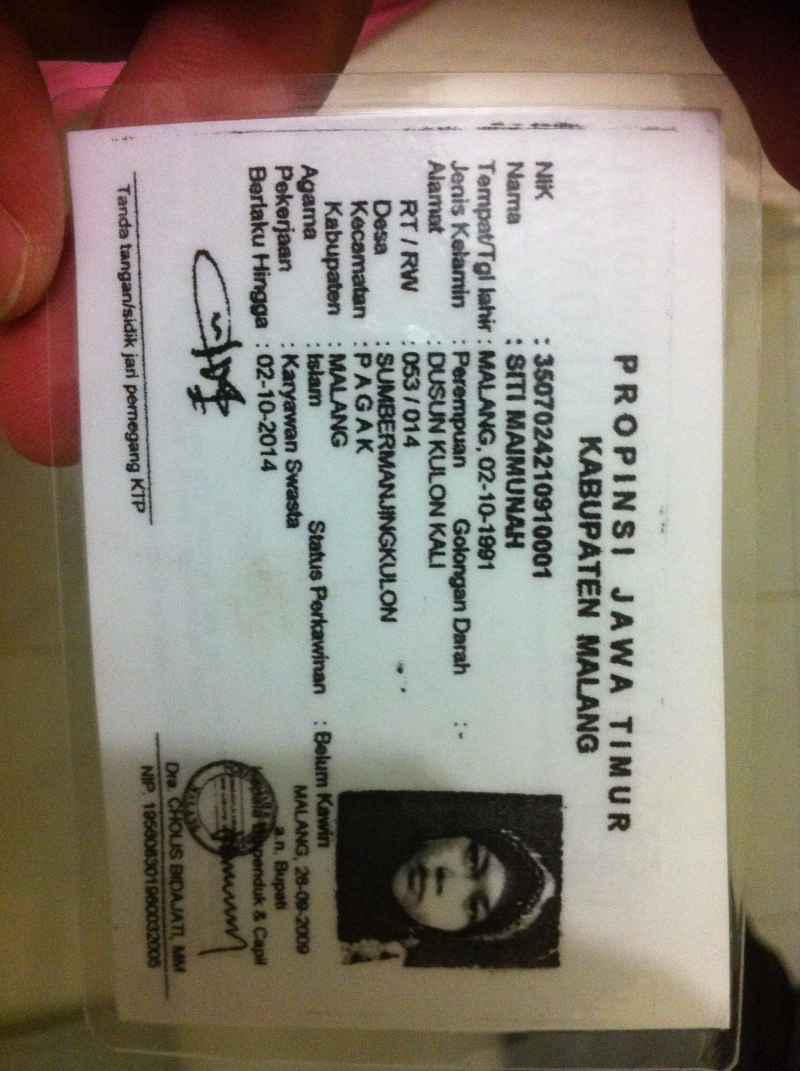 PROPINSI JAWA TIMUR
KABUPATEN MALANG
NIK : 3507024210910001
Nama : SITI MAIMUNAH
Tempat/Tgl lahir : MALANG, 02-10-1991
Jenis Kelamin : Perempuan Golongan Darah : -
Alamat : DUSUN KULON KALI
RT / RW : 053 / 014
Desa : SUMBERMANJINGKULON
Kecamatan : P A G A K
Kabupaten : MALANG
Agama : Islam Status Perkawinan : Belum Kawin
Pekerjaan : Karyawan Swasta
Berlaku Hingga : 02-10-2014
MALANG, 28-09-2009
a.n. Bupati
Kepala Dispenduk & Capil
Tanda tangan/sidik jari pemegang KTP
Dra. CHOLIS BIDAJATI, MM
NIP. 195908301980032005